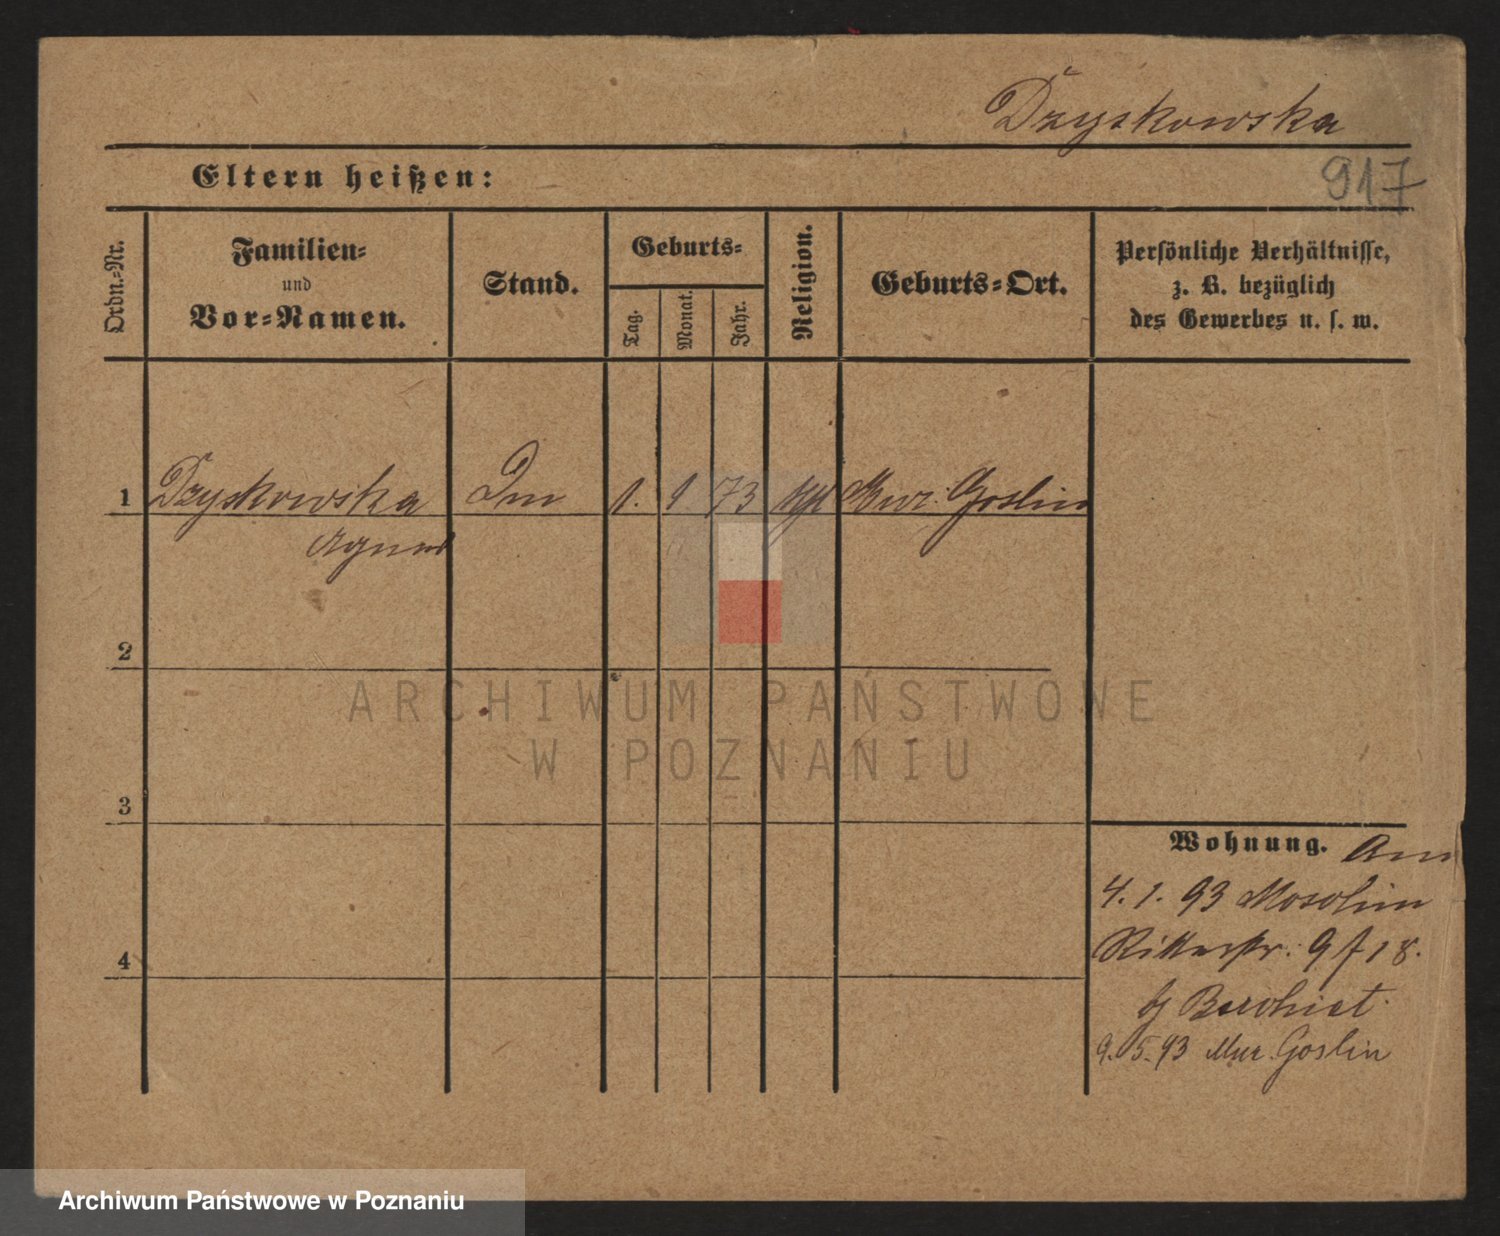 Dzyskowska
Eltern heißen:
917
Ordn.-Nr.
Familien-
und
Vor-Namen.
Stand.
Geburts-
Tag.
Monat.
Jahr.
Religion.
Geburts-Ort.
Persönliche Verhältnisse,
z. B. bezüglich
des Gewerbes u. s. w.
1 Dzyskowska 1. 9 73 Mur. Goslin
Agnes
2
3
4
Wohnung. Am
4. 1. 93 Mosolim
Ritterstr. 9 f 18.
9. 5. 93 Mur. Goslin
ARCHIWUM PAŃSTWOWE
W POZNANIU
Archiwum Państwowe w Poznaniu